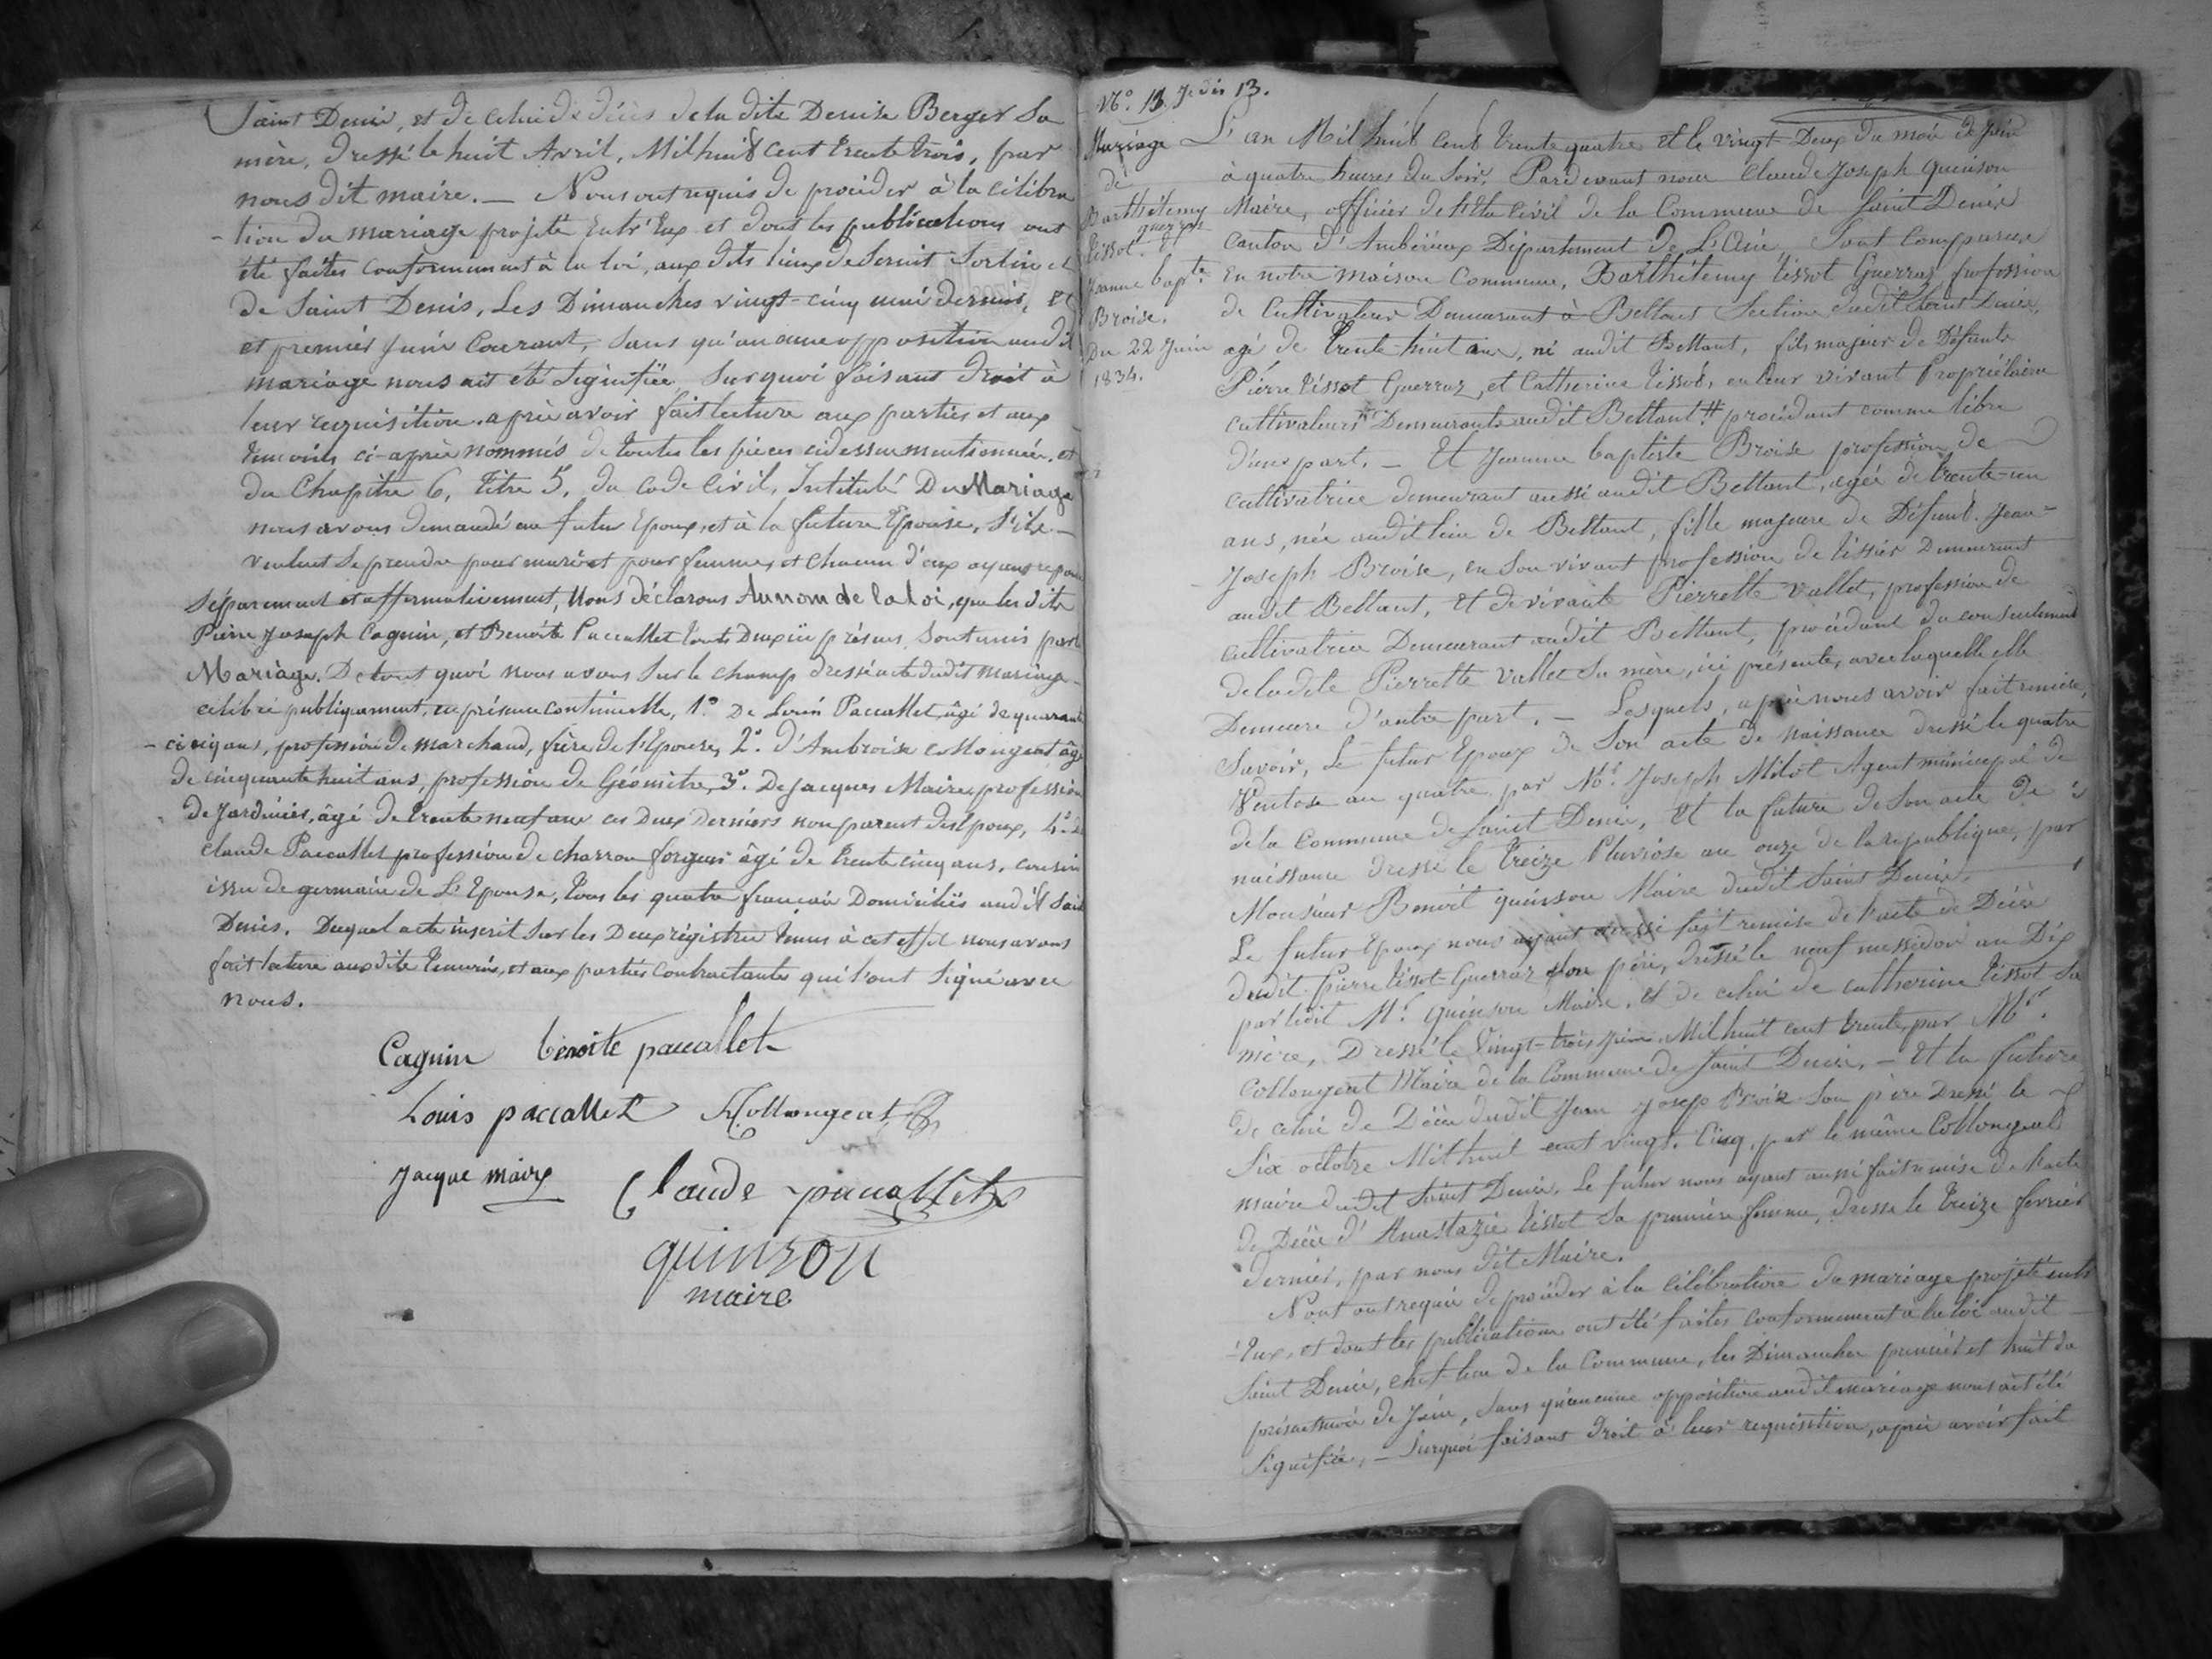 Saint Denis, et de celui de décès de la dite Denise Berger Sa
mère, dressé le huit Avril, Mil huit cent trente trois, par
nous dit maire. — Nous ont requis de procéder à la célébra
-tion du mariage projeté Entr'Eux et dont les publications ont
été faites conformément à la loi, aux dits lieux de Sermit Sorlin et
de Saint Denis, Les Dimanches vingt-cinq mai dernier, et
et premier Juin Courant, Sans qu'aucune opposition audit
mariage nous ait été Signifiée, Sur quoi faisant droit à
leur requisition, après avoir fait lecture aux parties et aux
temoins ci-après nommés de toutes les pièces cidessus mentionnées, et
du Chapitre 6, titre 5, du Code Civil, Intitulé Du Mariage
nous avons demandé au futur Epoux, et à la future Epouse, S'ils —
veulent Se prendre pour mari et pour femme, et chacun d'eux ayant repondu
Séparement et affirmativement, Nous déclarons Au nom de la loi, que les dits
Pierre Joseph Cagnin, et Benoite Paccallet tous Deux ici présens, Sont unis par le
Mariage. De tout quoi nous avons Sur le champ dressé acte dudit mariage
célébré publiquement, en présence continuelle, 1.° De Louis Paccallet, âgé de quarante
-cinq ans, profession de marchand, frère de l'Epouse, 2.° d'Ambroise Collongeat âgé
de cinquante huit ans, profession de Géomètre, 3.° De Jacques Maire, profession
de Jardinier, âgé de trente neuf ans ces Deux Derniers non parent des Epoux, 4.° de
claude Paccallet profession de charron forgeur âgé de trente cinq ans, cousin
issu de germain de L'Epouse, tous les quatre français Domiciliés audit Saint
Denis. Duquel acte inscrit Sur les Deux régistres tenus à cet effet nous avons
fait lecture aux dits temoins, et aux parties contractantes qui l'ont Signé avec
nous.
Cagnin benoite paccallet
Louis paccallet A. Collongeat
Jacque maire Claude paccallet
quinson
maire
N.° 13. 13.
Mariage
de
Barthélemy
guerraz
tissot. et
Jeanne bapt.te
Broise.
Du 22 Juin
1834.
L'an Mil huit cent trente quatre et le vingt-Deux du mois de Juin
à quatre heures du Soir, Pardevant nous Claude Joseph Quinson
Maire, officier de l'Etat Civil de la Commune de Saint Denis
Canton d'Ambérieux Département de L'Ain, Sont Comparus
En notre maison Commune, Barthélemy tissot Guerraz profession
de Cultivateur Demeurant à Bettant Section dudit Saint Denis,
agé de trente-huit ans, né audit Bettant, fils majeur de Défunts
Pierre tissot Guerraz, et Catherine tissot, en leur vivant Propriétaire
cultivateurs Demeurants audit Bettant # procédant comme libre
d'une part. — Et Jeanne baptiste Broise profession de
cultivatrice demeurant aussi audit Bettant, agée de trente-un
ans, née audit lieu de Bettant, fille majeure de Défunt Jean-
Joseph Broise, en Son vivant profession de tissier Demeurant
audit Bettant, et de vivante Pierrette vallet, profession de
cultivatrice Demeurant audit Bettant, procédant du consentement
de ladite Pierrette Vallet Sa mère, ici présente, avec laquelle elle
Demeure d'autre part. — Lesquels, après nous avoir fait remise,
Savoir, Le futur Epoux de Son acte de naissance dressé le quatre
Ventose an quatre par M.r Joseph Milot Agent municipal de
de la Commune de Saint Denis, Et la future de Son acte de
naissance dressé le treize Pluviose an onze de la republique, par
Monsieur Benoit quinson Maire dudit Saint Denis.
Le futur Epoux nous ayant aussi fait remise de l'acte de Décès
dudit Pierre tissot-Guerraz Son père, dressé le neuf messidor an Dix
par ledit M.r Quinson Maire, et de celui de catherine tissot Sa
mère, Dressé le Vingt-trois Juin Mil huit cent trente, par M.r
Collongeat Maire de la Commune de Saint Denis, — Et la future
de celui de Décès dudit Jean Joseph Broise Son père Dressé le
Six octobre Mil huit cent vingt-Cinq, par le même Collongeat
maire dudit Saint Denis. Le futur nous ayant aussi fait remise de l'acte
de Décès d'Anastazie tissot Sa première femme, dressé le treize fevrier
dernier, par nous dit Maire.
Nont ont requis de procéder à la célébration du mariage projeté entr'
-Eux, et dont les publications ont été faites conformément à la loi audit
Saint Denis, chef-lieu de la Commune, les Dimanches premier et huit du
présent mois de Juin, Sans qu'aucune opposition audit mariage nous ait été
Signifiée, — Surquoi faisant droit à leur requisition, après avoir fait